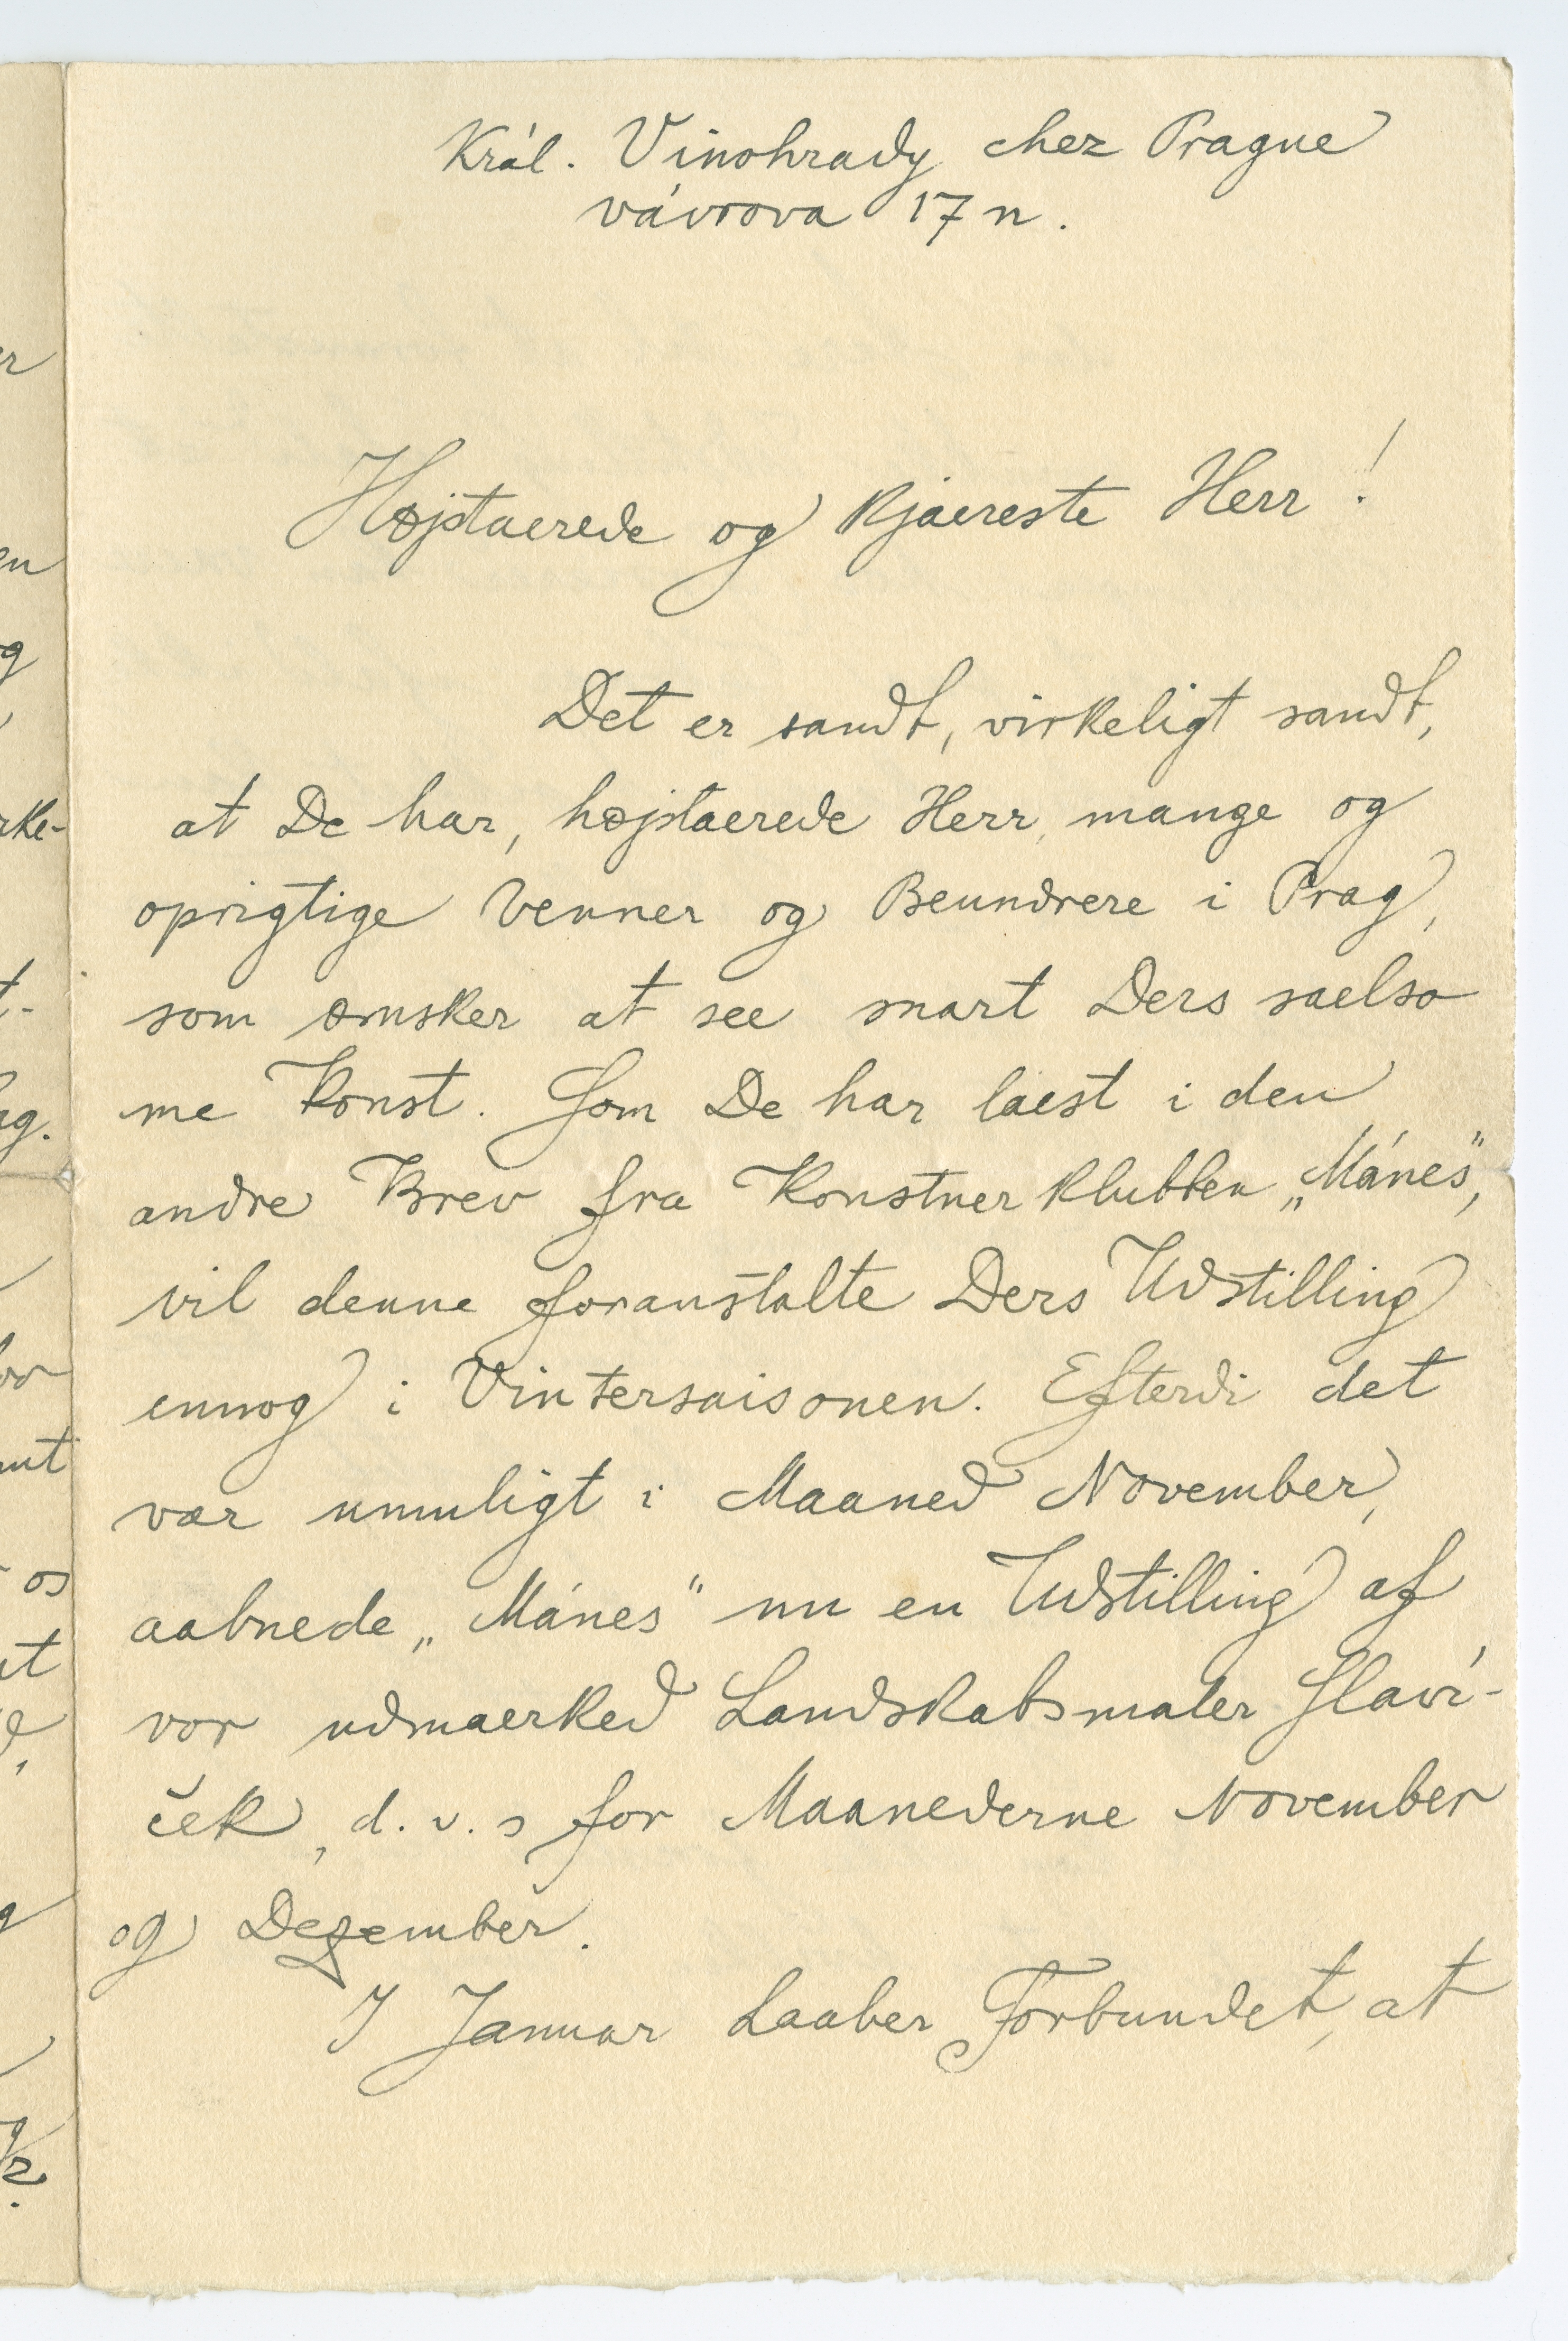 Král. Vinohrady chez Prague
vávrova 17 n.
Højstaerede og kjaereste Herr!
Det er sandt, virkeligt sandt,
at De har, højstaerede Herr, mange og
oprigtige Venner og Beundrere i Prag,
som ønsker at see snart Ders saelso
me Konst. Som De har laest i den
andre Brev fra Konstnerklubben „Mánes",
vil denne foranstalte Ders Udstilling
ennog i Vintersaisonen. Efterdi det
var umuligt i Maaned November,
aabnede „Mánes" nu en Udstilling af
vor udmaerked Landskabsmaler Slaví-
ček, d. v. s for Maanederne November
og Dezember.
I Januar haaber Forbundet, at